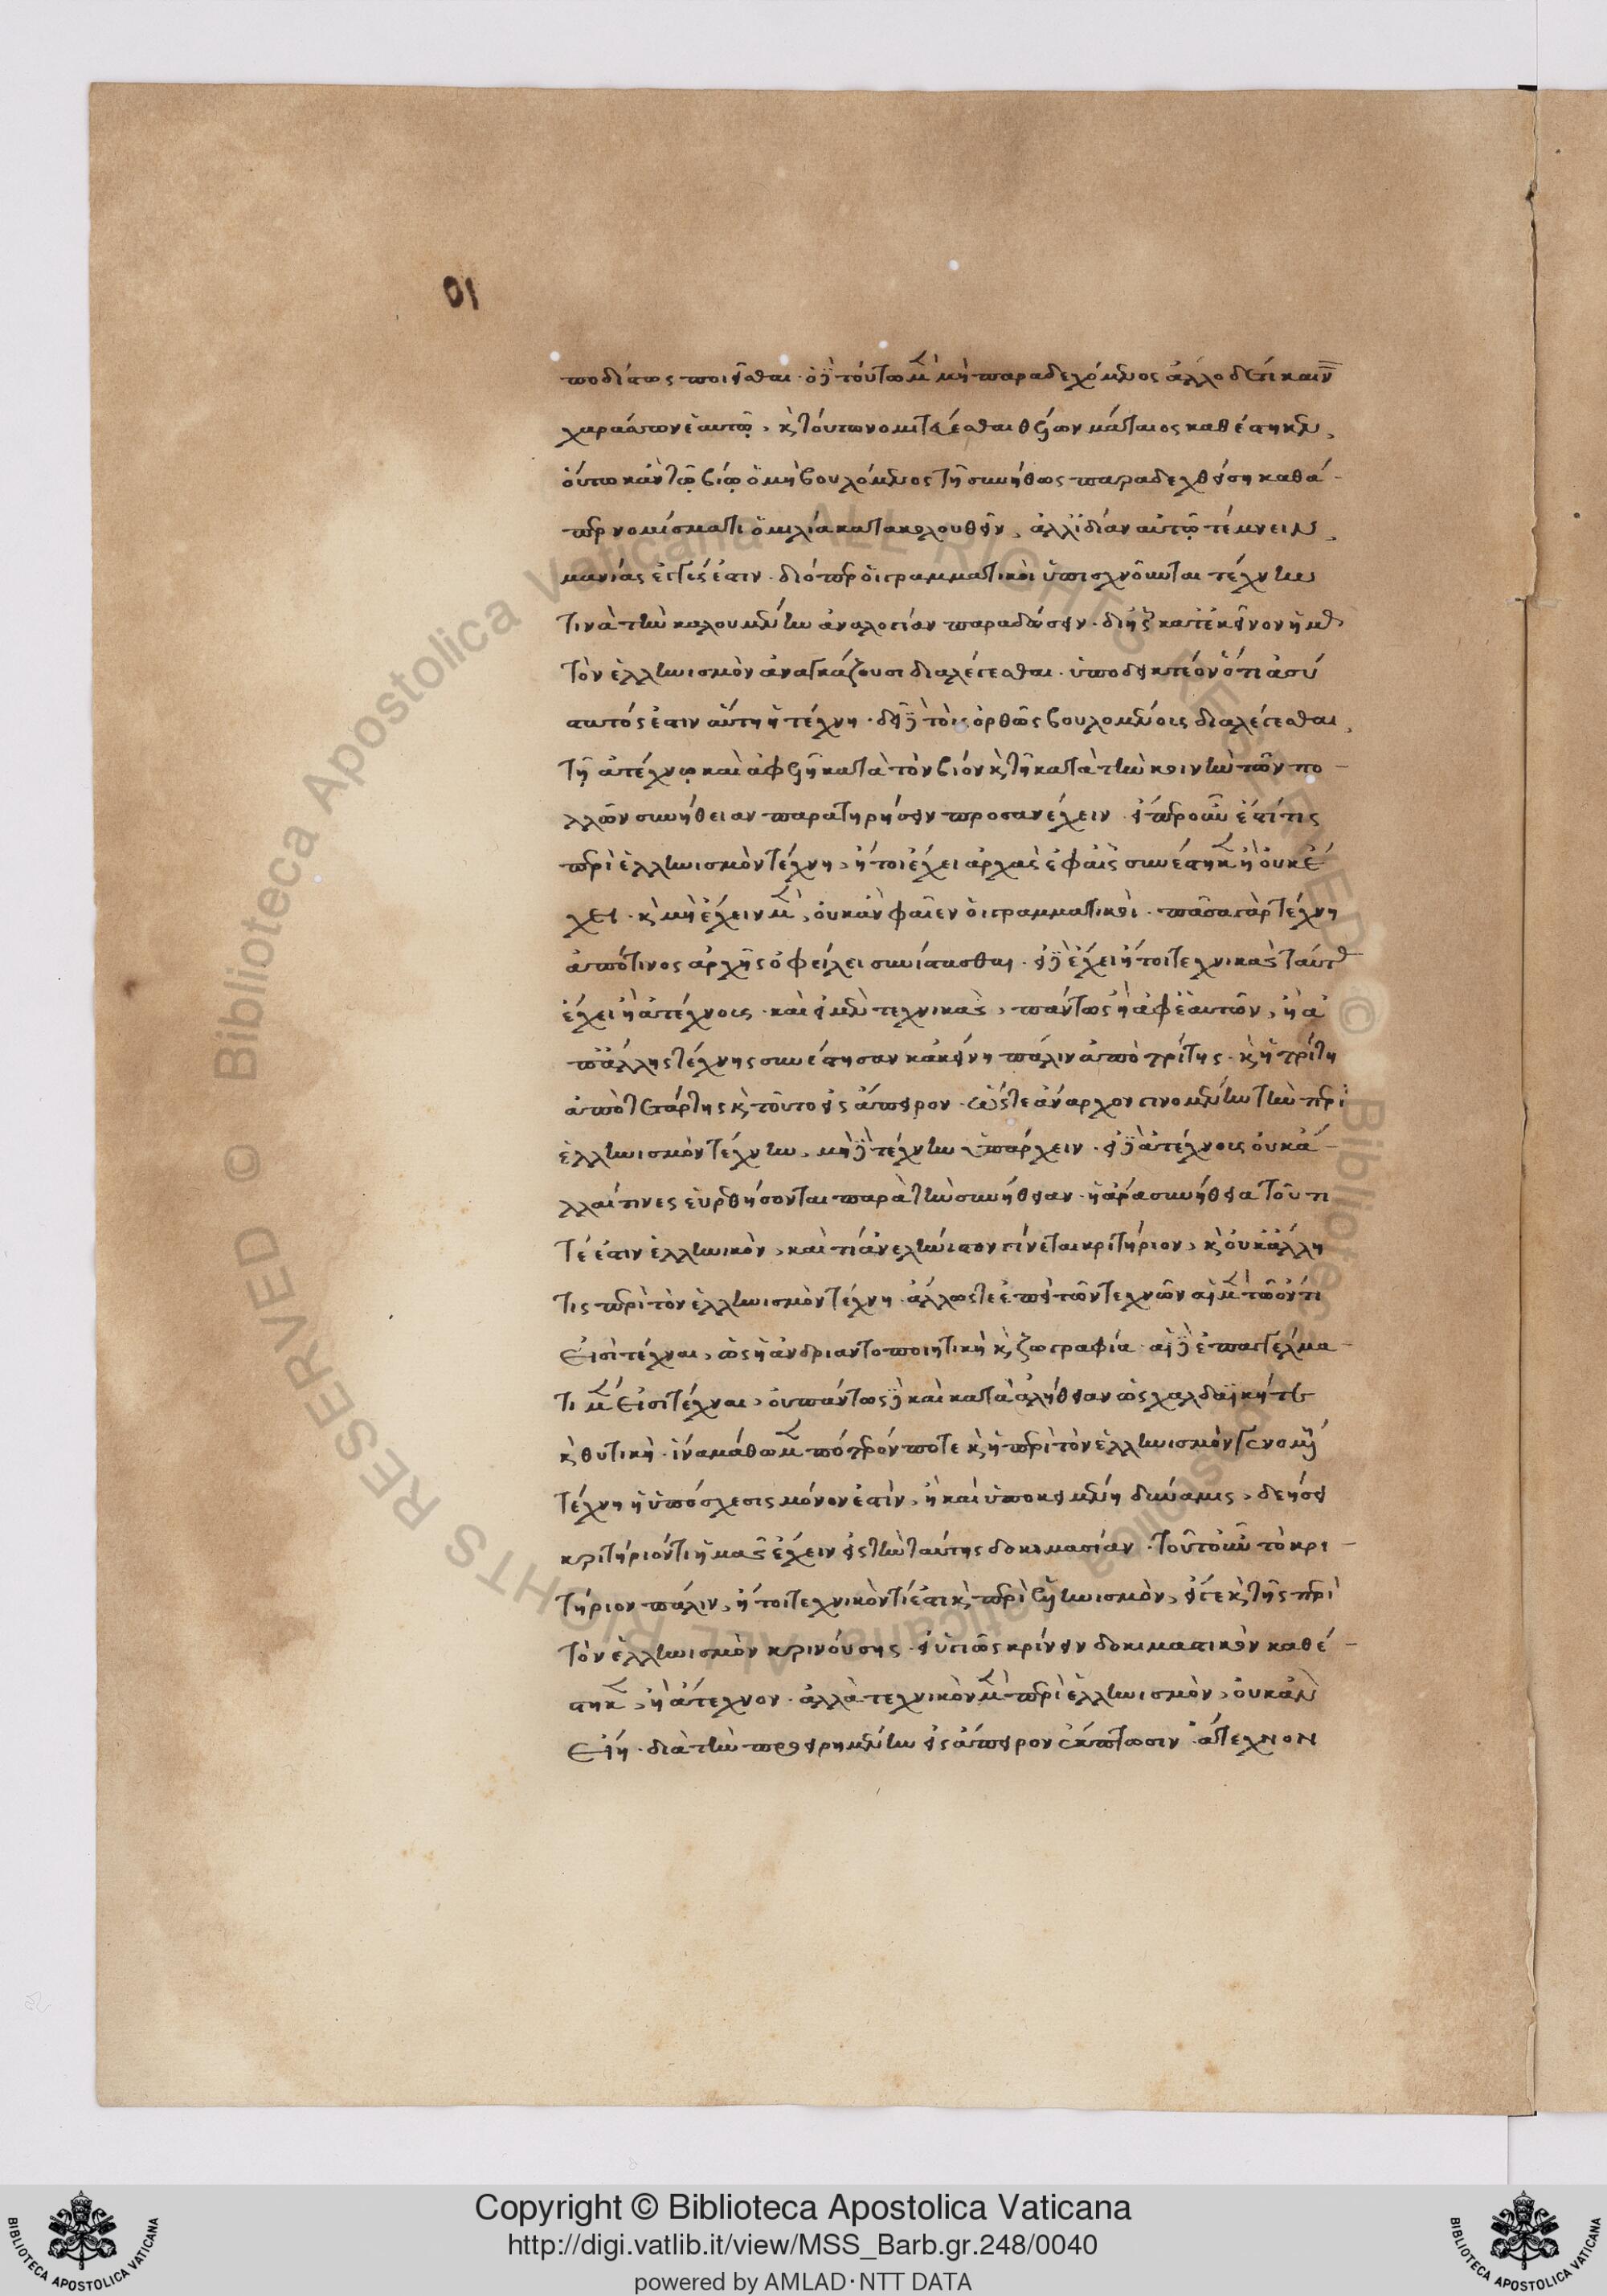 01
ποδίστως ποιεῖσθαι· ὁ δὲ τούτω μὲν μὴ παραδεχόμενος ἄλλο δέ τι καινὸν
χαράσσων ἑαυτῷ, καὶ τούτω νομιστεύεσθαι θέλων μάταιος καθέστηκεν,
οὕτω κἀν τῷ βίῳ ὁ μὴ βουλόμενος τῇ συνήθως παραδεχθείσῃ καθά-
περ νομίσματι ὁμιλίᾳ κατακολουθεῖν, ἀλλ' ἰδίαν αὑτῷ τέμνειν,
μανίας ἐγγύς ἐστιν· διόπερ οἱ γραμματικοὶ ὑπισχνοῦνται τέχνην
τινὰ τὴν καλουμένην ἀναλογίαν παραδώσειν· δι' ἧς κατ' ἐκεῖνον ἡμᾶς
τὸν ἑλληνισμὸν ἀναγκάζουσι διαλέγεσθαι· ὑποδεικτέον ὅτι ἀσύ
στατός ἐστιν αὕτη ἡ τέχνη· δεῖ δὲ τοὺς ὀρθῶς βουλομένοις διαλέγεσθαι,
τῇ ἀτέχνῳ καὶ ἀφελῇ κατὰ τὸν βίον καὶ τῇ κατὰ τὴν κοινὴν τῶν πο-
λλῶν συνήθειαν παρατηρήσειν προσανέχειν· εἴπερ οὖν ἐστί τις
περὶ ἑλληνισμὸν τέχνη, ἤτοι ἔχει ἀρχὰς ἐφ' αἷς συνέστηκεν ἢ οὐκ ἔ
χει· καὶ μὴ ἔχειν μὲν, οὐκ ἂν φαῖεν οἱ γραμματικοί· πᾶσα γὰρ τέχνη
ἀπό τινος ἀρχῆς ὀφείλει συνίστασθαι· εἰ δὲ ἔχει ἤτοι τεχνικὰς ταύτας
ἔχει ἢ ἀτέχνοις· καὶ εἰ μὲν τεχνικὰς, πάντως ἢ ἀφ' ἑαυτῶν, ἢ ἀ
π' ἄλλης τέχνης συνέστησαν κἀκείνη πάλιν ἀπὸ τρίτης· καὶ ἡ τρίτη
ἀπὸ τετάρτης καὶ τοῦτο εἰς ἄπειρον· ὥστε ἄναρχον γινομένην τὴν περὶ
ἑλληνισμὸν τέχνην, μὴ δὲ τέχνην ὑπάρχειν· εἰ δὲ ἀτέχνοις οὐκ ἄ-
λλαι τινες εὑρεθήσονται παρὰ τὴν συνήθειαν· ἡ ἄρα συνήθεια τοῦ τί
τέ ἐστιν ἑλληνικὸν, καὶ τί ἀνελλήνιστον γίνεται κριτήριον, καὶ οὐκ ἄλλη
τις περὶ τὸν ἑλληνισμὸν τέχνη· ἄλλως τε ἐπεὶ τῶν τεχνῶν αἱ μὲν τῷ ὄντι
εἰσὶ τέχναι, ὡς ἡ ἀνδριαντοποιητικὴ καὶ ζωγραφία· αἱ δὲ ἐπαγγέλμα-
τι μὲν εἰσὶ τέχναι, οὐ πάντως δὲ καὶ κατὰ ἀλήθειαν ὡς χαλδαϊκή τε
καὶ θυτικὴ· ἵνα μάθωμεν πότερόν ποτε καὶ ἡ περὶ τὸν ἑλληνισμὸν
τέχνη ἡ ὑπόσχεσις μόνον ἐστὶν, ἢ καὶ ὑποκειμένη δύναμις, δεήσει
κριτήριόν τι ἡμᾶς ἔχειν εἰς τὴν ταύτης δοκιμασίαν· τοῦτο οὖν τὸ κρι-
τήριον πάλιν, ἤτοι τεχνικόν τί ἐστι καὶ περὶ ἑλληνισμὸν, εἴγε καὶ τῆς περὶ
τὸν ἑλληνισμὸν κρινούσης· εἰ ὑγιῶς κρίνειν δοκιμαστικὸν καθέ-
στηκεν, ἢ ἄτεχνον· ἀλλὰ τεχνικὸν μὲν περὶ ἑλληνισμὸν, οὐκ ἂν
εἴη· διὰ τὴν προειρημένην εἰς ἄπειρον ἔκπτωσιν· ἄτεχνον
Copyright © Biblioteca Apostolica Vaticana
http://digi.vatlib.it/view/MSS_Barb.gr.248/0040
powered by AMLAD·NTT DATA